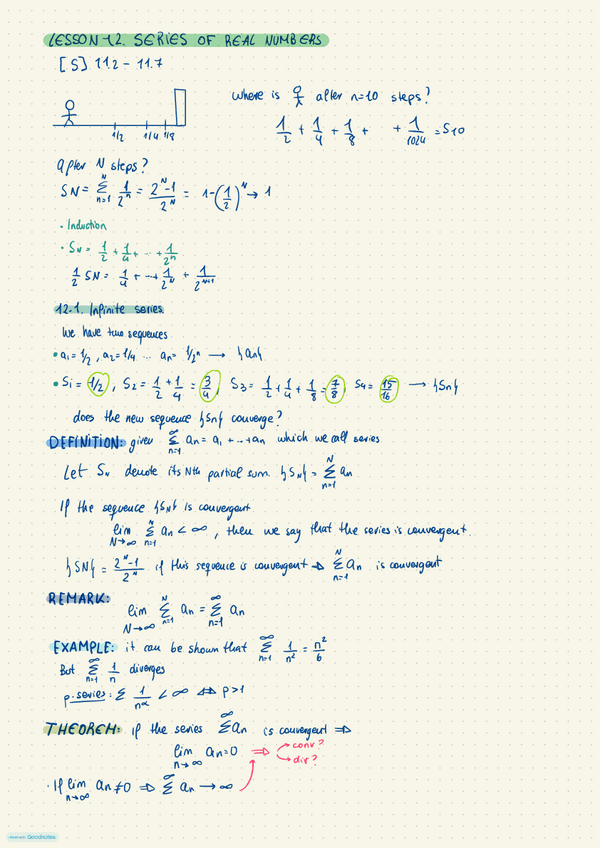 LESSON 12. SERIES OF REAL NUMBERS
[S] 11.2 – 11.7
1/2 1/4 1/8
where is after n=10 steps?
1/2 + 1/4 + 1/8 + + 1/1024 = S10
after N steps?
SN = Σ_{n=1}^{N} 1/2^n = (2^N-1)/2^N = 1-(1/2)^N → 1
· Induction
· SN = 1/2 + 1/4 + ... + 1/2^n
1/2 SN = 1/4 + ... + 1/2^N + 1/2^{N+1}
12.1. Infinite series
We have two sequences
• a1 = 1/2, a2 = 1/4 ... an = 1/2^n → {an}
• S1 = 1/2, S2 = 1/2 + 1/4 = 3/4, S3 = 1/2 + 1/4 + 1/8 = 7/8, S4 = 15/16 → {Sn}
does the new sequence {Sn} converge?
DEFINITION: given Σ_{n=1}^{∞} an = a1 + ... + an which we call series
Let SN denote its Nth partial sum. {SN} = Σ_{n=1}^{N} an
If the sequence {Sn} is convergent
lim_{N→∞} Σ_{n=1}^{N} an < ∞, then we say that the series is convergent.
{SN} = (2^N-1)/2^N if this sequence is convergent ⇒ Σ_{n=1}^{N} an is convergent
REMARK:
lim_{N→∞} Σ_{n=1}^{N} an = Σ_{n=1}^{∞} an
EXAMPLE: it can be shown that Σ_{n=1}^{∞} 1/n^2 = π^2/6
But Σ_{n=1}^{∞} 1/n diverges
p-series: Σ 1/n^α < ∞ ⇔ p>1
THEOREM: if the series Σ^{∞} an is convergent ⇒
lim_{n→∞} an = 0 ⇒ conv? div?
· If lim_{n→∞} an ≠ 0 ⇒ Σ^{∞} an → ∞
Made with Goodnotes